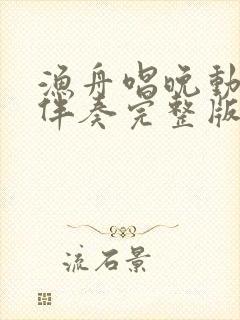 渔舟唱晚动
伴奏完整版
流石景